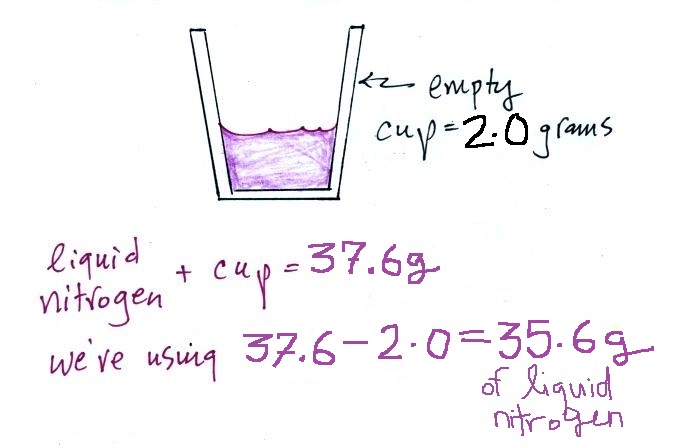 empty
cup = 2.0 grams
liquid
nitrogen + cup = 37.6g
we've using 37.6 - 2.0 = 35.6g
of liquid
nitrogen